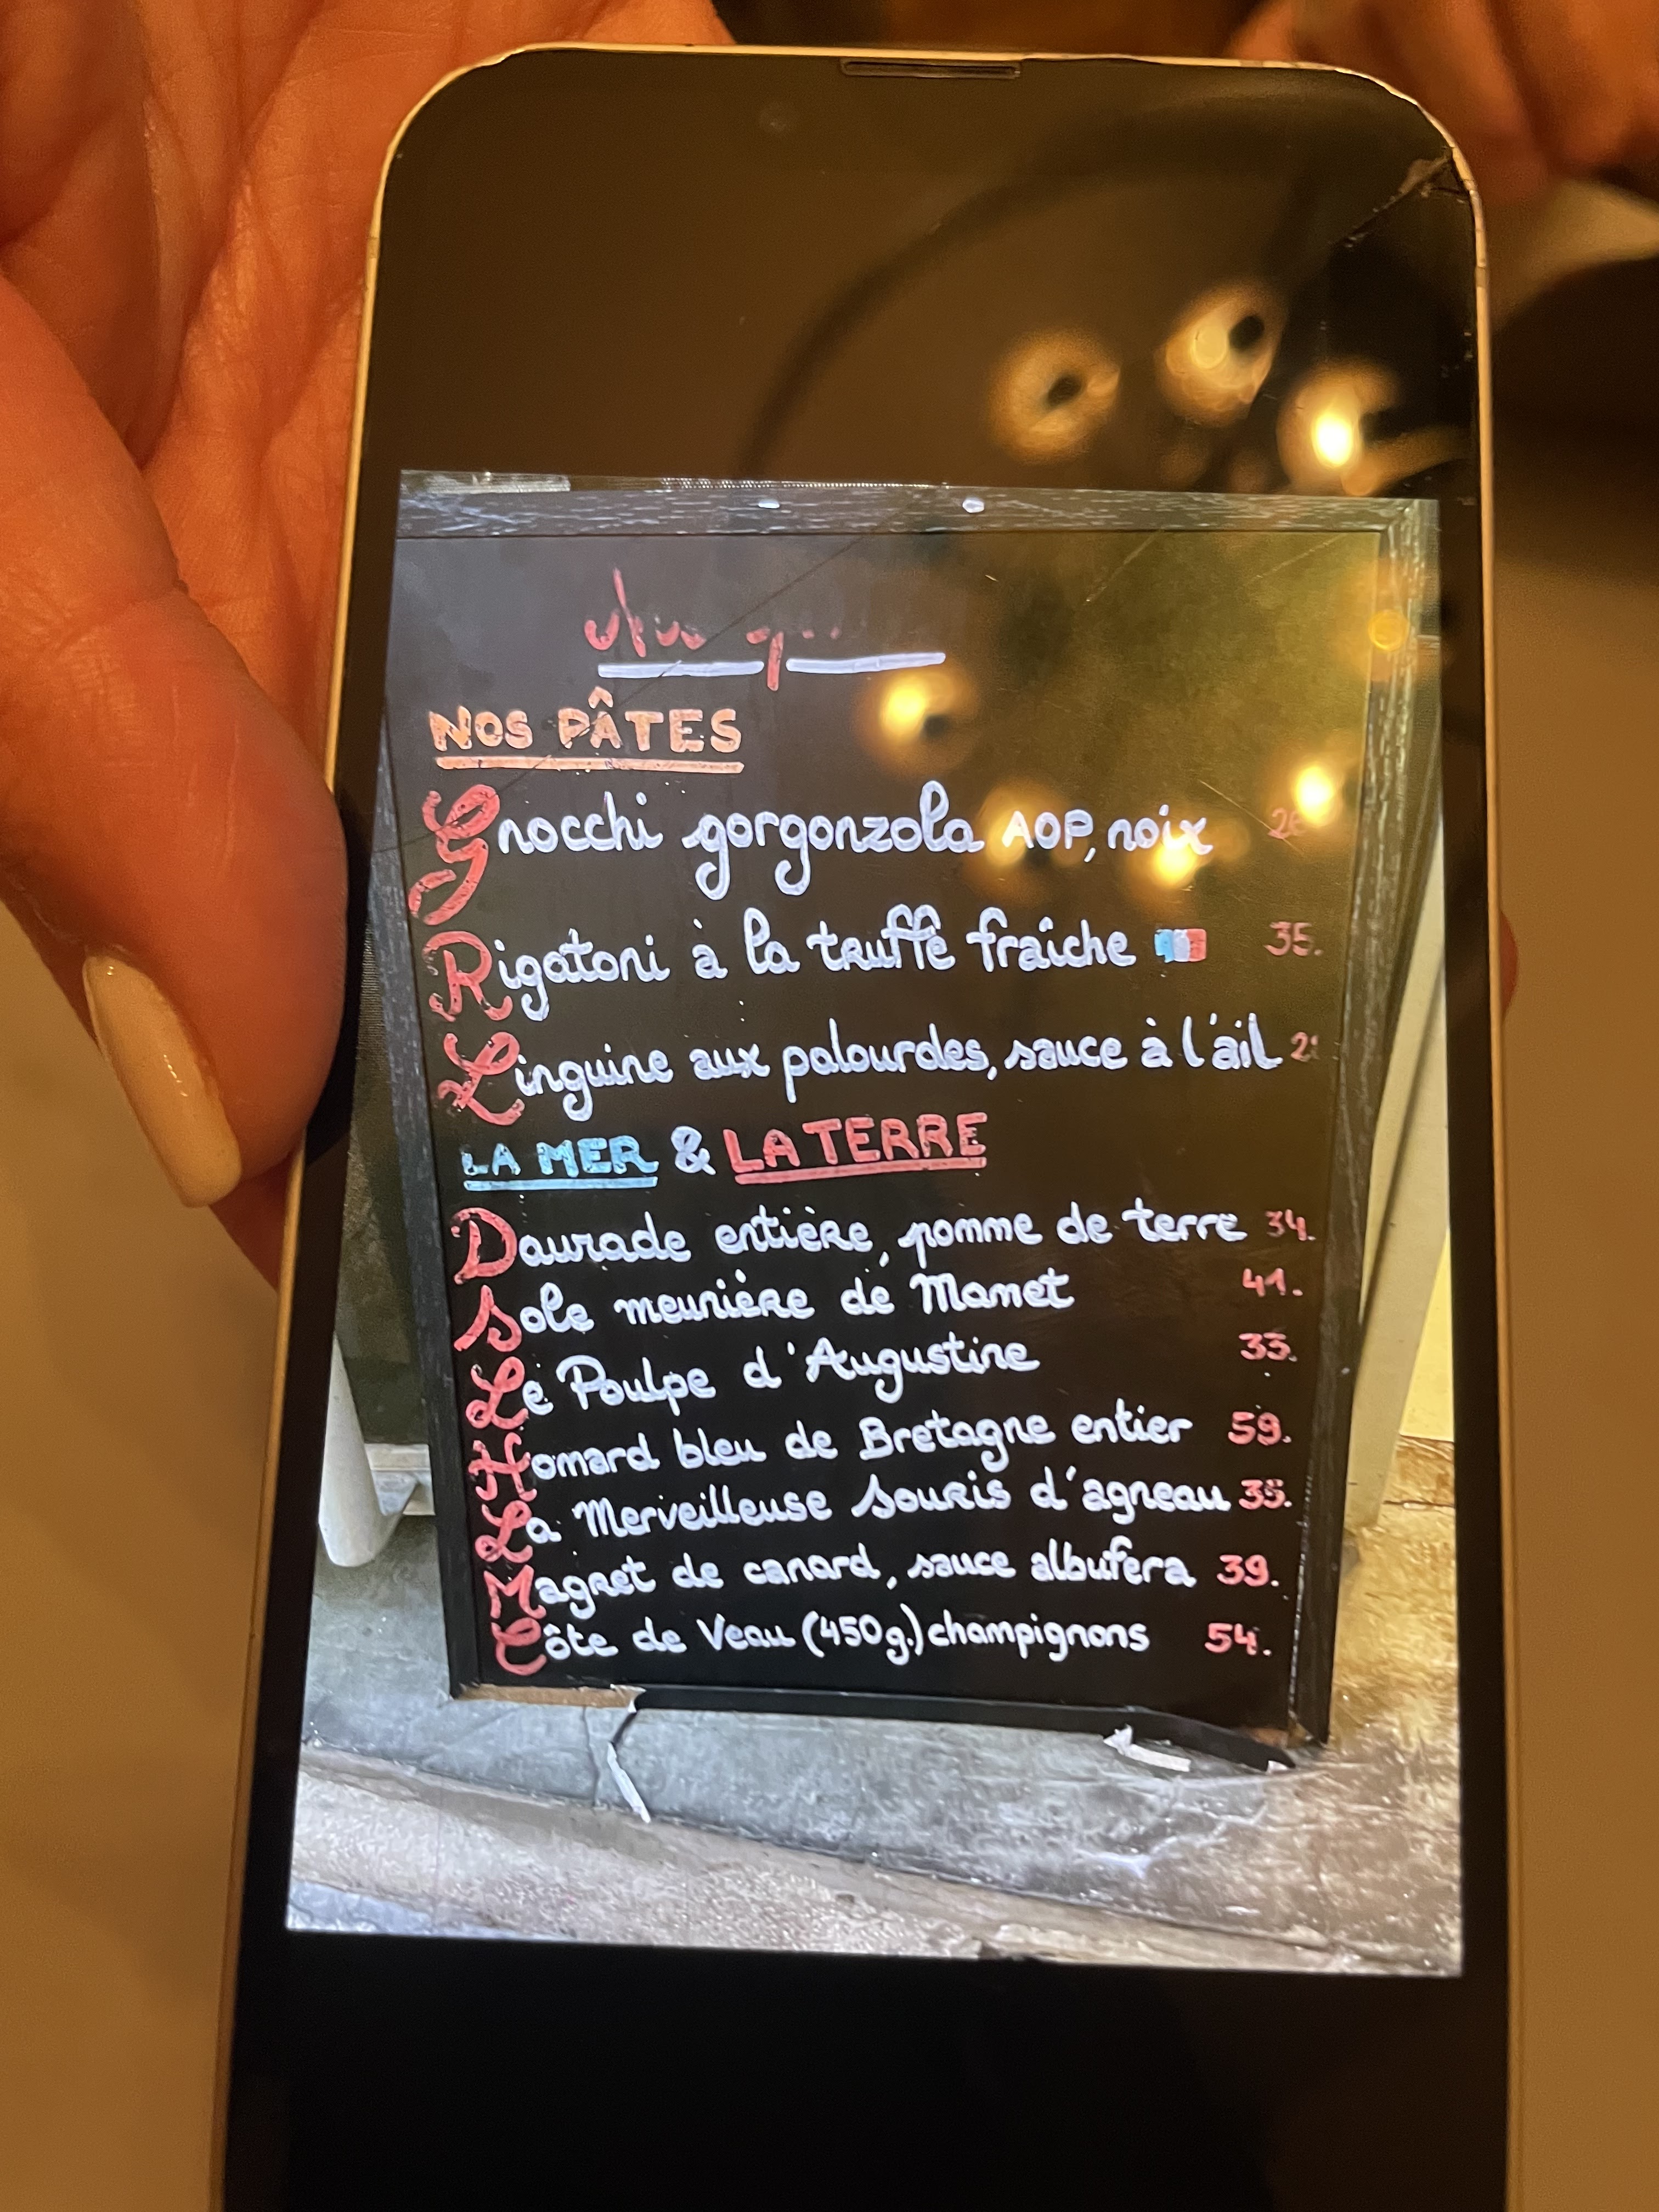 NOS PÂTES
Gnocchi gorgonzola AOP, noix
Rigatoni à la truffe fraîche 35.
Linguine aux palourdes, sauce à l'ail
LA MER & LA TERRE
Daurade entière, pomme de terre 34.
Sole meunière de Mamet 41.
Le Poulpe d'Augustine 33.
Homard bleu de Bretagne entier 59.
La Merveilleuse Souris d'agneau 35.
Magret de canard, sauce albufera 39.
Côte de Veau (450g.) champignons 54.